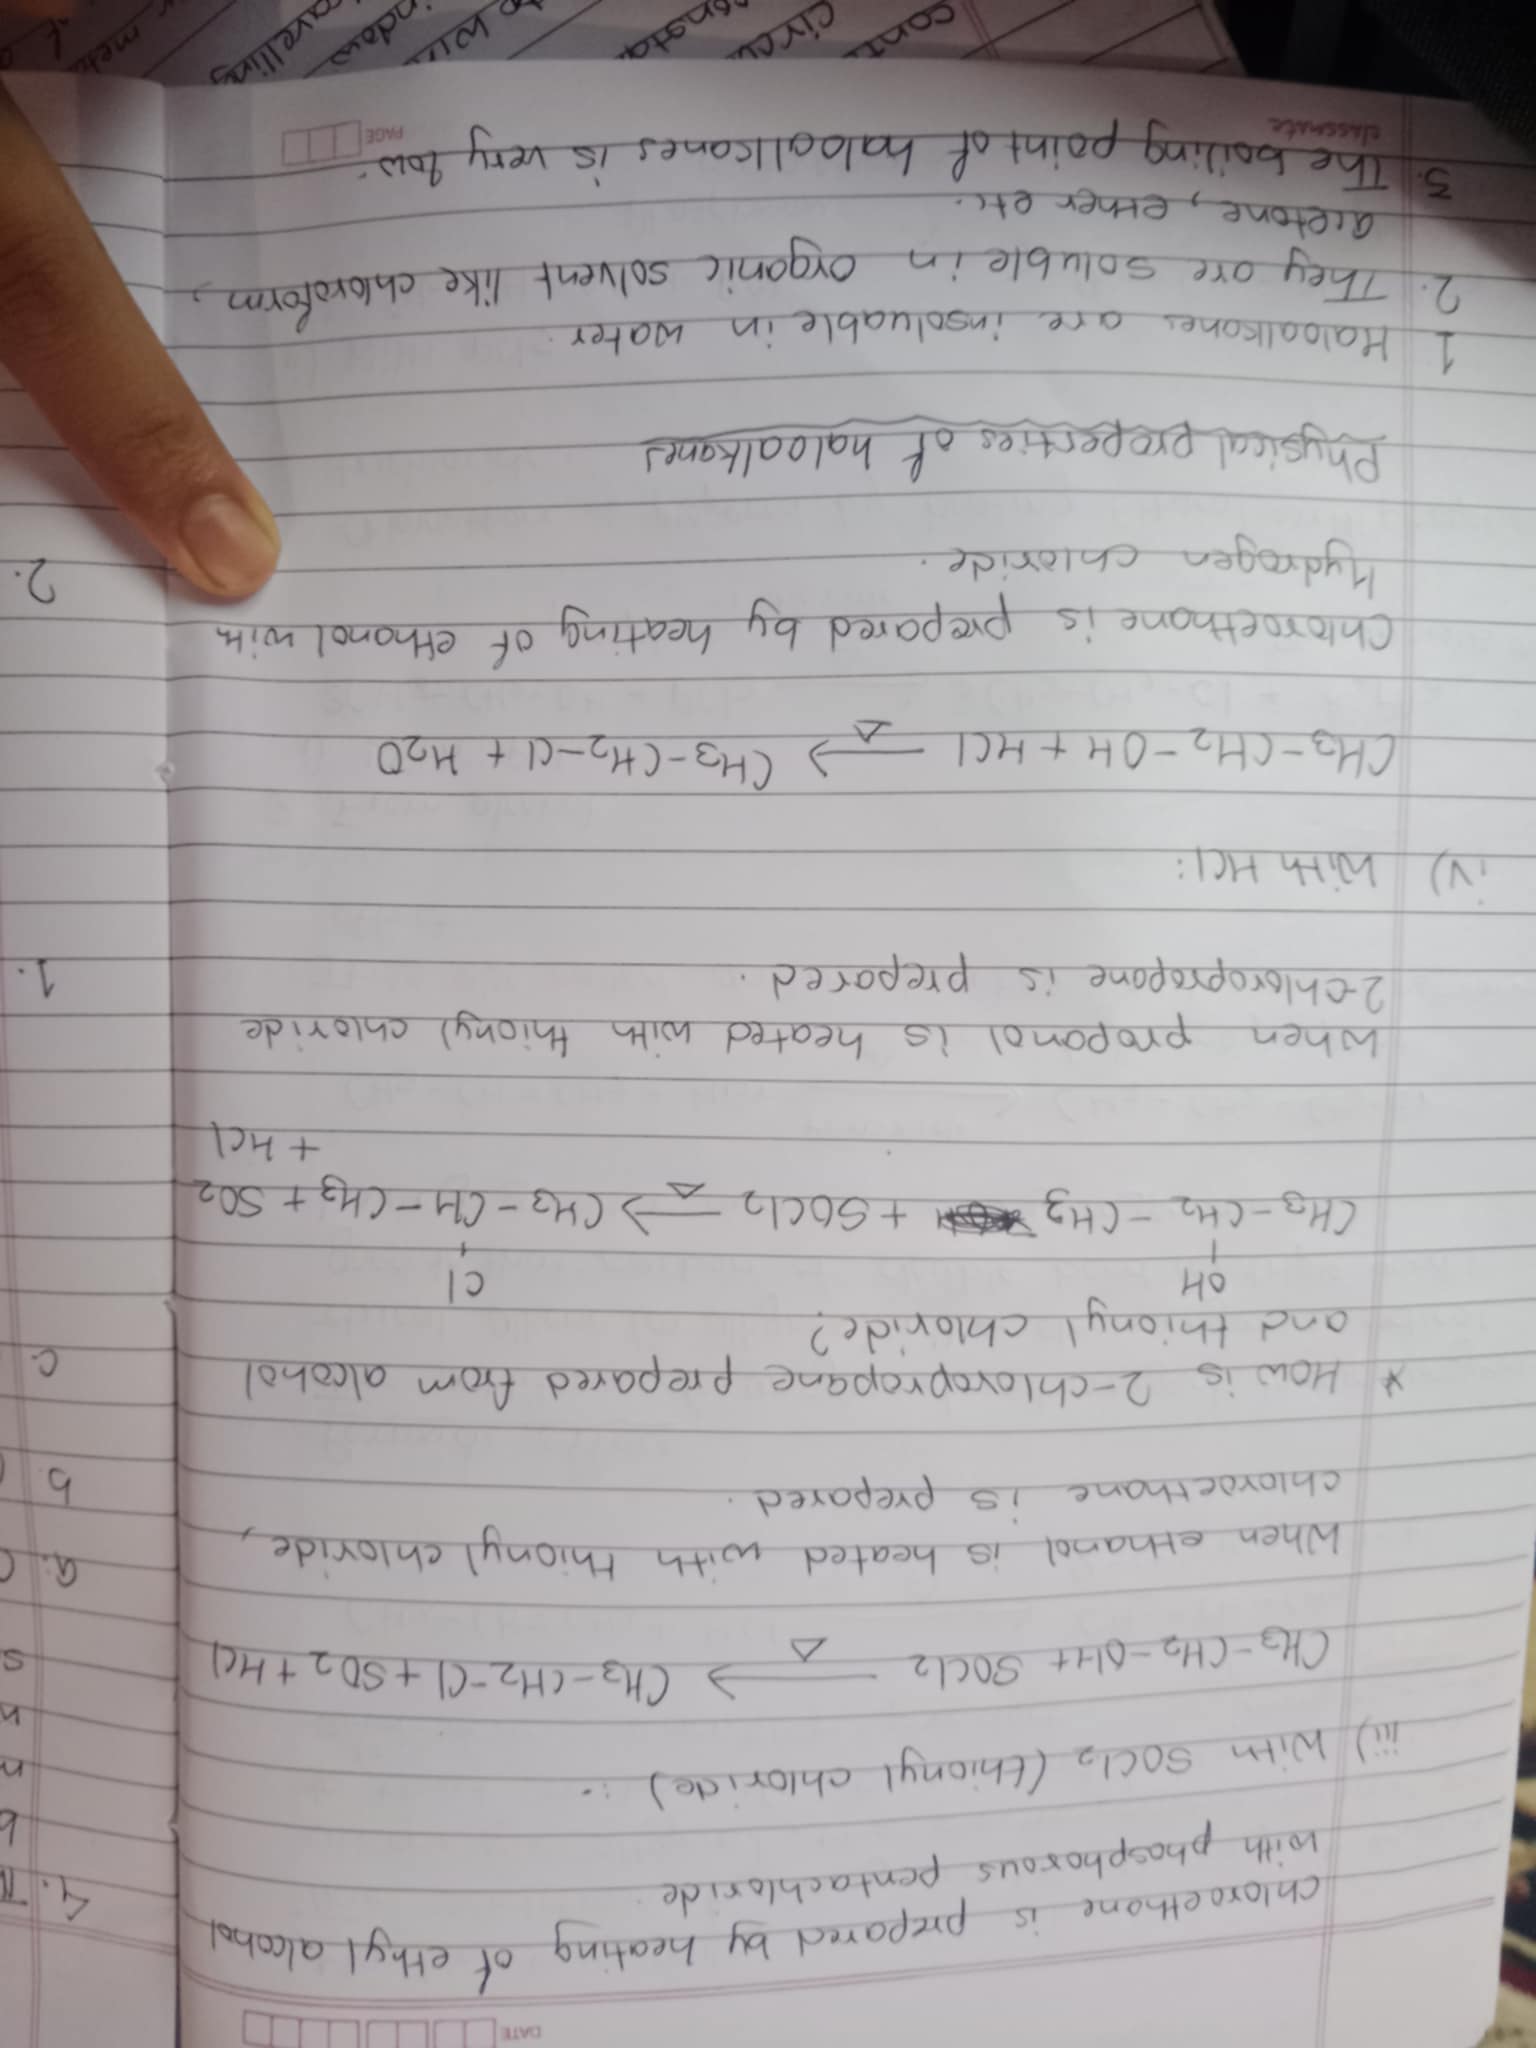 DATE
chloroethane is prepared by heating of ethyl alcohol
with phosphorous pentachloride.
iii) With SOCl2 (thionyl chloride) :-
CH3-CH2-OH + SOCl2 → CH3-CH2-Cl + SO2 + HCl
Δ
When ethanol is heated with thionyl chloride,
chloroethane is prepared.
* How is 2-chloropropane prepared from alcohol
and thionyl chloride?
OH Cl
CH3-CH2-CH3 + SOCl2 → CH3-CH-CH3 + SO2
Δ
+ HCl
When propanol is heated with thionyl chloride
2-chloropropane is prepared.
iv) With HCl:
CH3-CH2-OH + HCl → CH3-CH2-Cl + H2O
Δ
Chloroethane is prepared by heating of ethanol with
Hydrogen chloride.
Physical properties of haloalkanes
1 Haloalkanes are insoluable in water.
2. They are soluble in organic solvent like chloroform,
acetone, ether etc.
3. The boiling point of haloalkanes is very low.
classmate
PAGE
4.
b
n
n
s
a.
b.
c.
1.
2.
circu
consta
to
indow
avelling